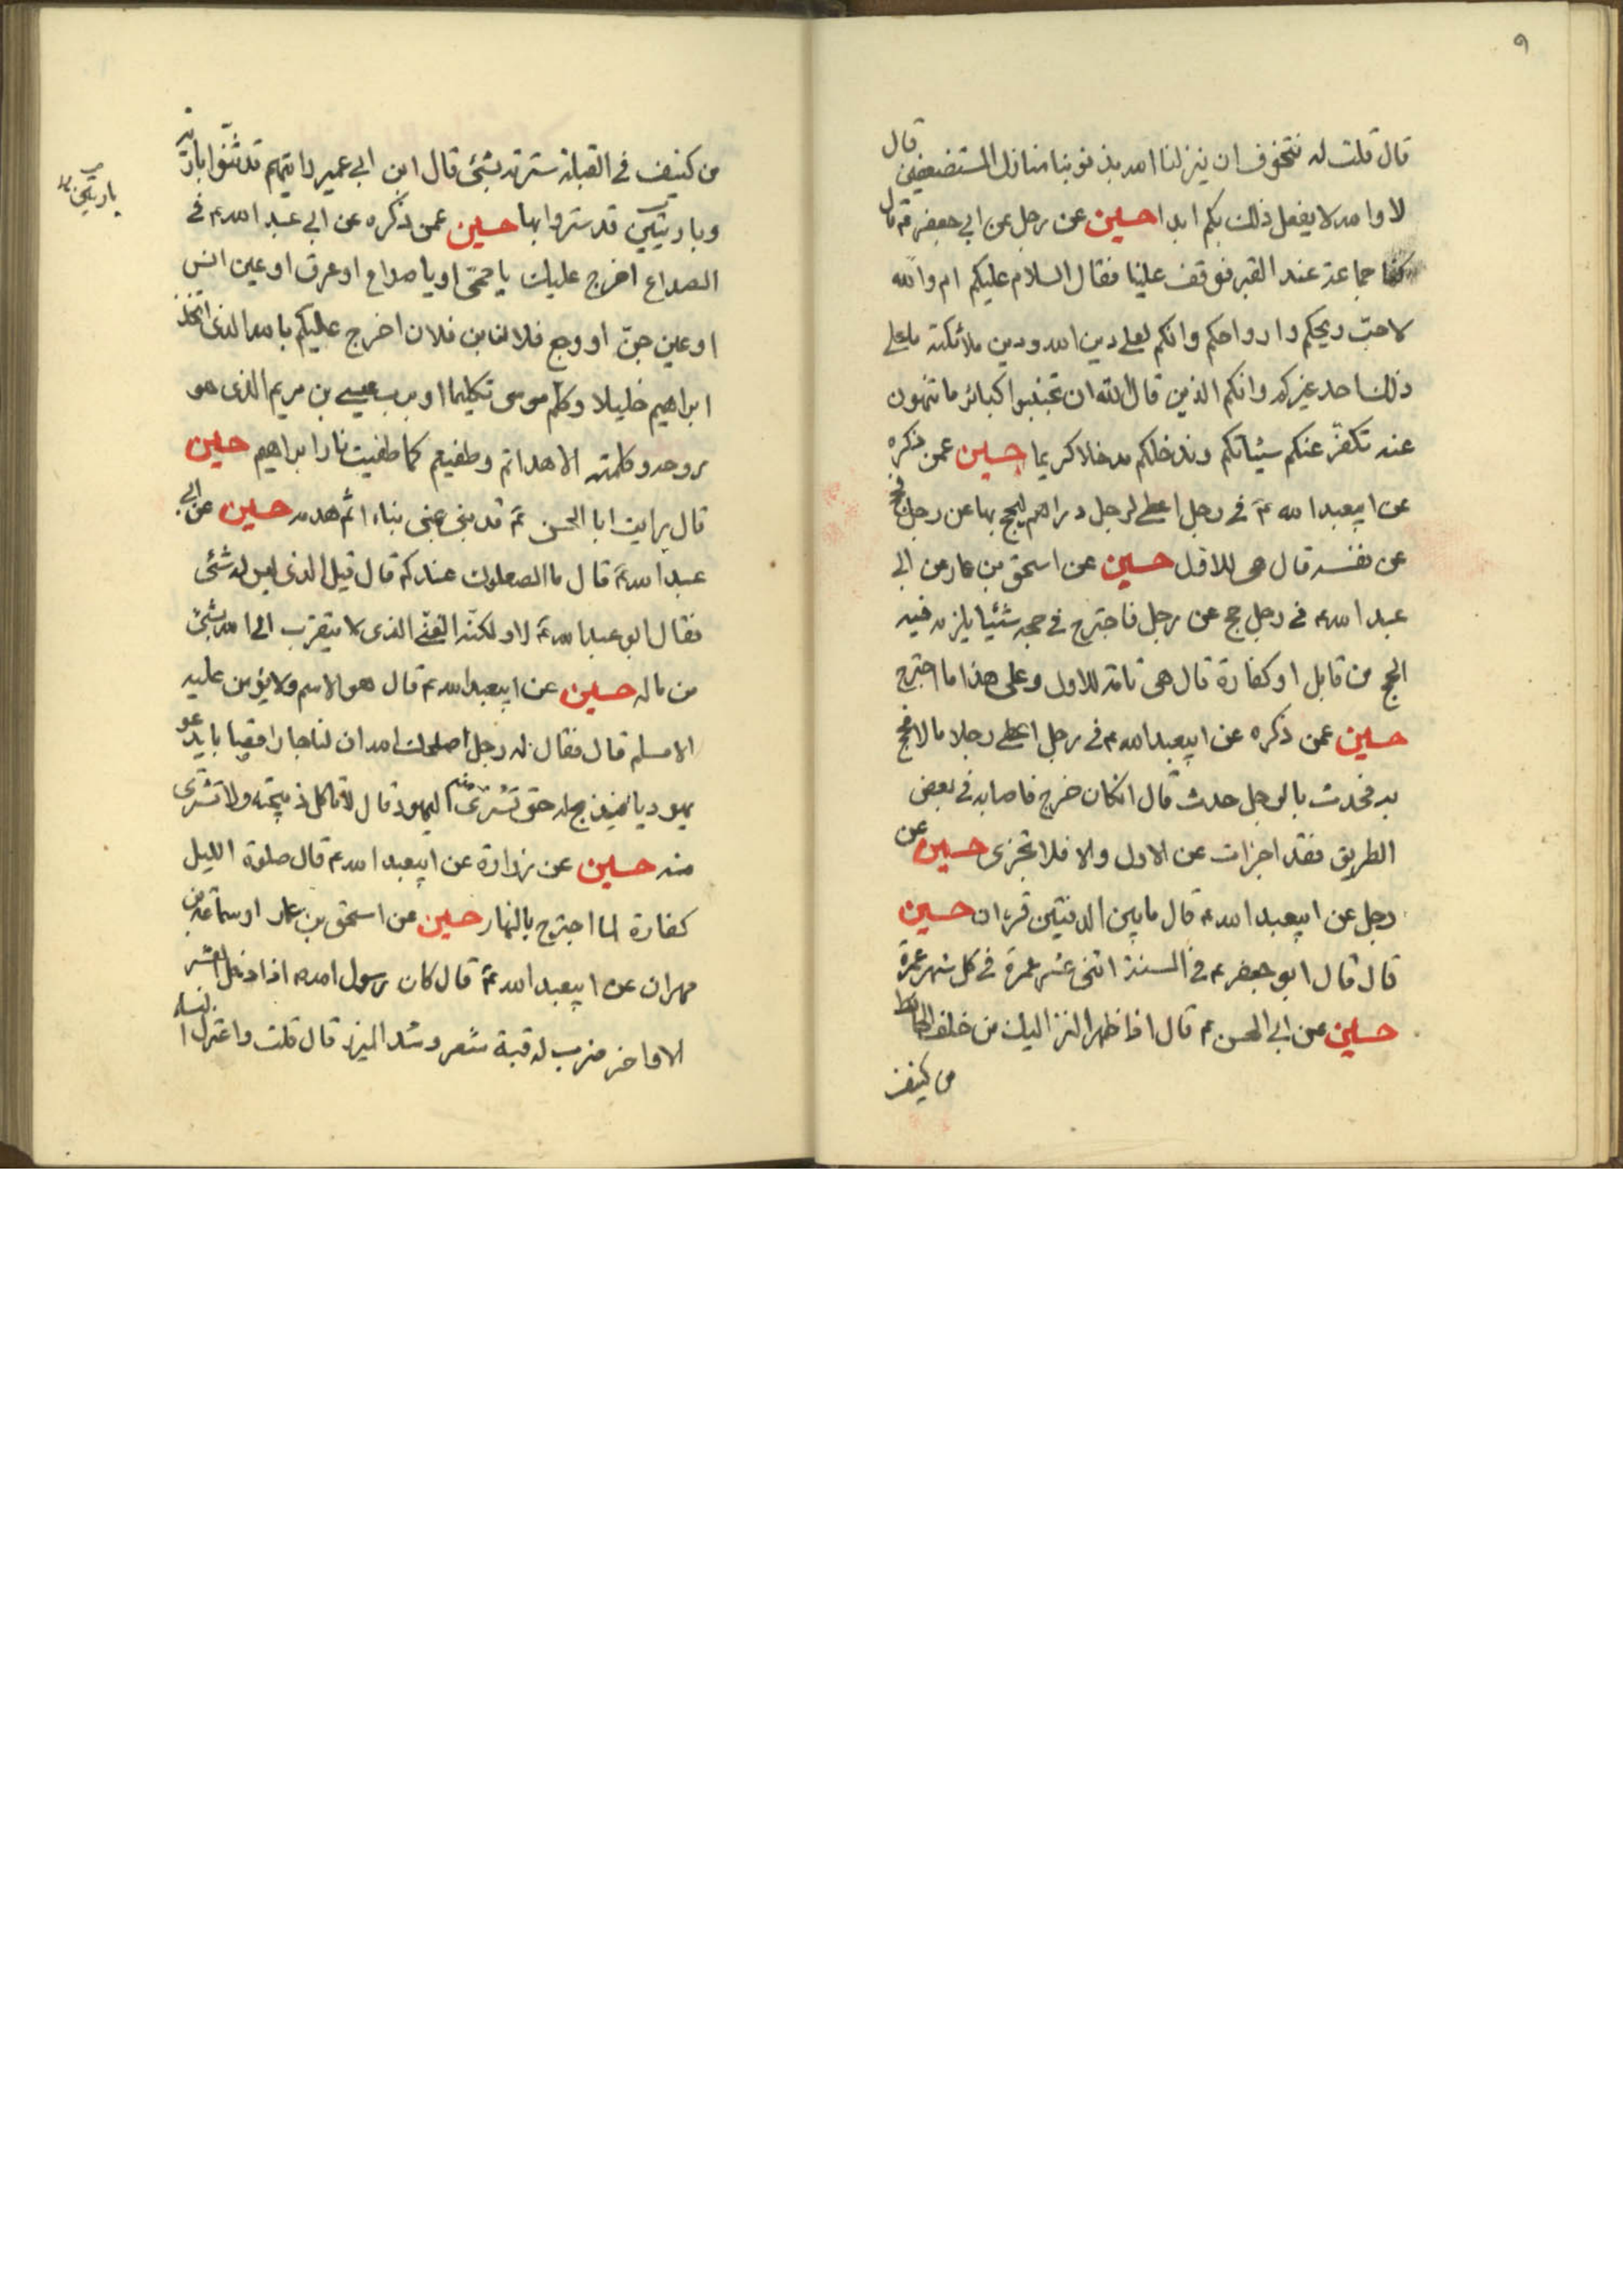 ٩
قال قلت له نتخوف ان ينزلنا الله بذنوبنا منازل المستضعفين قال
لا والله لا يفعل ذلك بكم ابدا حسين عن رجل عن ابي جعفر ع قال
كنا جماعة عند القبر فوقف علينا فقال السلام عليكم ام والله
لاحب ريحكم وارواحكم وانكم لعلى دين الله ودين ملائكته ما على
ذلك احد غيركم وانكم الذين قال الله ان تجتنبوا كبائر ما تنهون
عنه نكفر عنكم سيئاتكم وندخلكم مدخلا كريما حسين عمن ذكره
عن ابيعبد الله ع في رجل اعطى لرجل دراهم ليحج بها عن رجل فحج
عن نفسه قال هي للاول حسين عن اسحق بن عمار عن ابي
عبد الله ع في رجل حج عن رجل فاجترح في حجه شيئا يلزمه فيه
الحج من قابل او كفارة قال هي تامة للاول وعلى هذا ما اجترح
حسين عمن ذكره عن ابيعبد الله ع في رجل اعطى رجلا مالا فحج
به فحدث بالرجل حدث قال ان كان خرج فاصابه في بعض
الطريق فقد اجزات عن الاول والا فلا تجزى حسين عن
رجل عن ابيعبد الله ع قال ما بين الدفتين قران حسين
قال قال ابو جعفر ع في السنة اثنى عشر عمرة في كل شهر عمرة
حسين عن ابي الحسن ع قال اذا ظهر النز اليك من خلف الحائط
من كنيف
من كنيف في القبلة سترته بشئ قال ابن ابي عمير رايتهم قد ثنوا بارية
وباريتين قد ستروا بها حسين عمن ذكره عن ابي عبد الله ع في
باريتين
الصداع اخرج عليك يا حمى او يا صداع او عرق او عين انس
او عين جن او وجع فلان بن فلان اخرج عليكم بالله الذى اتخذ
ابراهيم خليلا وكلم موسى تكليما او برب عيسى بن مريم الذى هو
روحه وكلمته الا هداتم وطفيتم كما طفيت نار ابراهيم حسين
قال رايت ابا الحسن ع قد بنى بمنى بناء اثم هدمه حسين عن ابي
عبد الله ع قال ما الصعلوك عندكم قال قيل الذى ليس له شئ
فقال ابو عبد الله ع لا ولكنه الغنى الذى لا يتقرب الى الله بشئ
من ماله حسين عن ابيعبد الله ع قال هو الاسم ولا يؤمن عليه
الا مسلم قال فقال له رجل اصلحك الله ان لنا جارا قصابا يدعو
يهوديا فيذبح له حتى تشترى منه اليهود قال لا تاكل ذبيحته ولا تشترى
منه حسين عن زرارة عن ابيعبد الله ع قال صلوة الليل
كفارة لما اجترح بالنهار حسين عن اسحق بن عمار او سماعة بن
مهران عن ابيعبد الله ع قال كان رسول الله ص اذا دخل العشر
الاواخر ضرب له قبة شعر وشد الميزر قال قلت واعتزل النساء